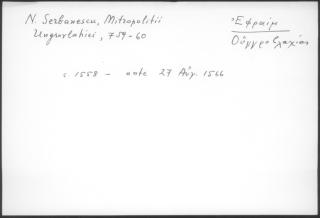 N. Şerbanescu, Mitropolitii
Ungrovlahiei, 759-60
Ἐφραίμ
Οὑγγροβλαχίας
c. 1558 - ante 27 Αὐγ. 1566